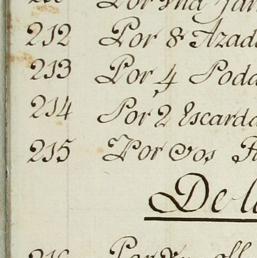 Por una
212 Por 8 Azad
213 Por 4 Poda
214 Por 2 Escarda
215 Por dos
De l
216 Por